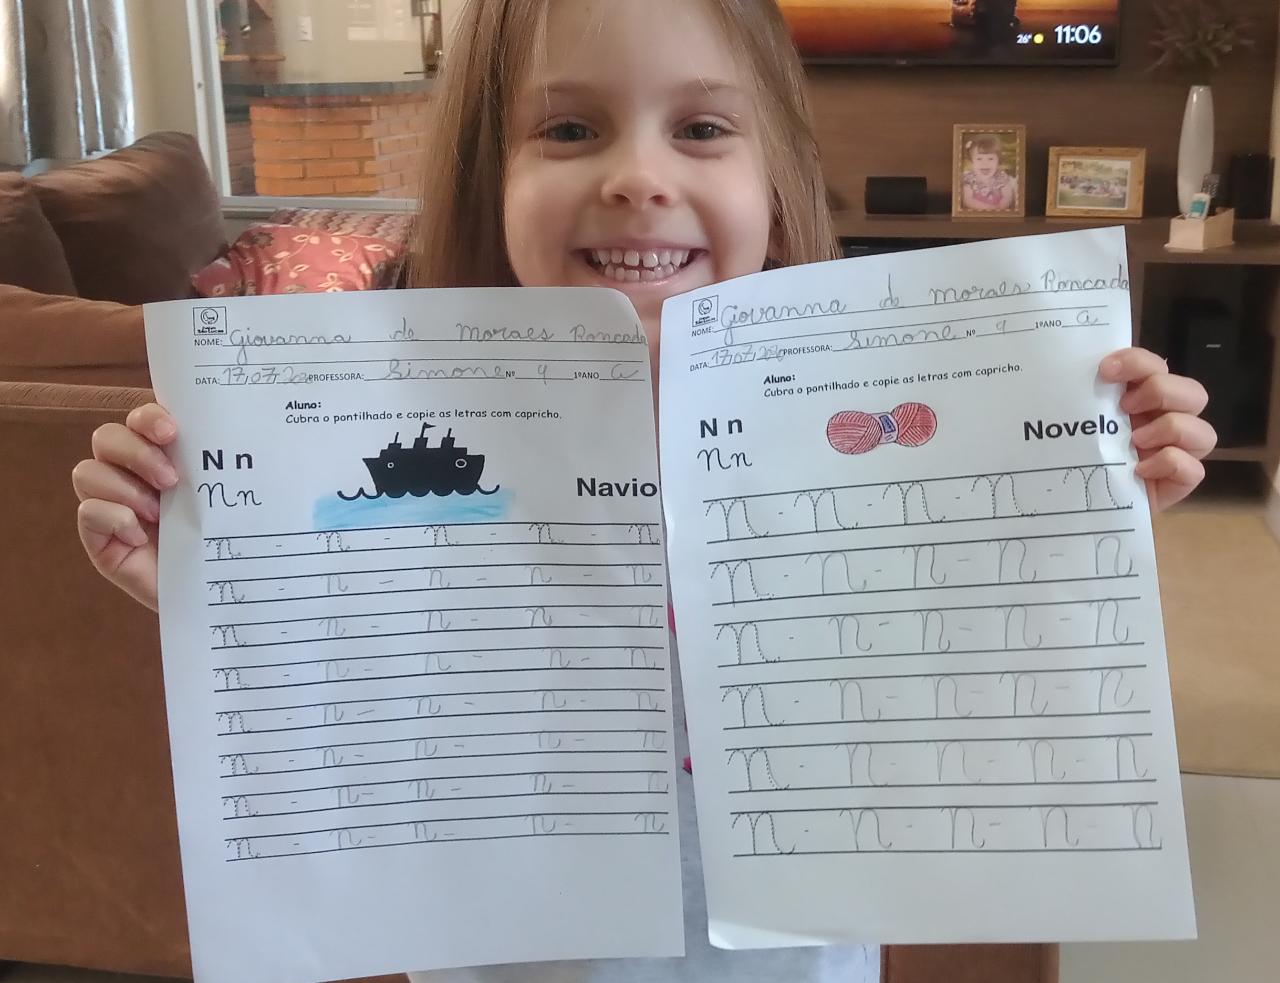 26° 11:06
NOME: Giovanna de Moraes Roncada
DATA: 17/07/2020 PROFESSORA: Simone Nº 9 1ºANO a
Aluno:
Cubra o pontilhado e copie as letras com capricho.
N n
N n
Navio
n - n - n - n - n
n - n - n - n - n
n - n - n - n - n
n - n - n - n - n
n - n - n - n - n
n - n - n - n - n
n - n - n - n - n
n - n - n - n - n
NOME: Giovanna de Moraes Roncada
DATA: 17/07/2020 PROFESSORA: Simone Nº 9 1ºANO a
Aluno:
Cubra o pontilhado e copie as letras com capricho.
N n
N n
Novelo
N - N - N - N - N
N - N - N - N - N
N - N - N - N - N
N - N - N - N - N
N - N - N - N - N
N - N - N - N - N